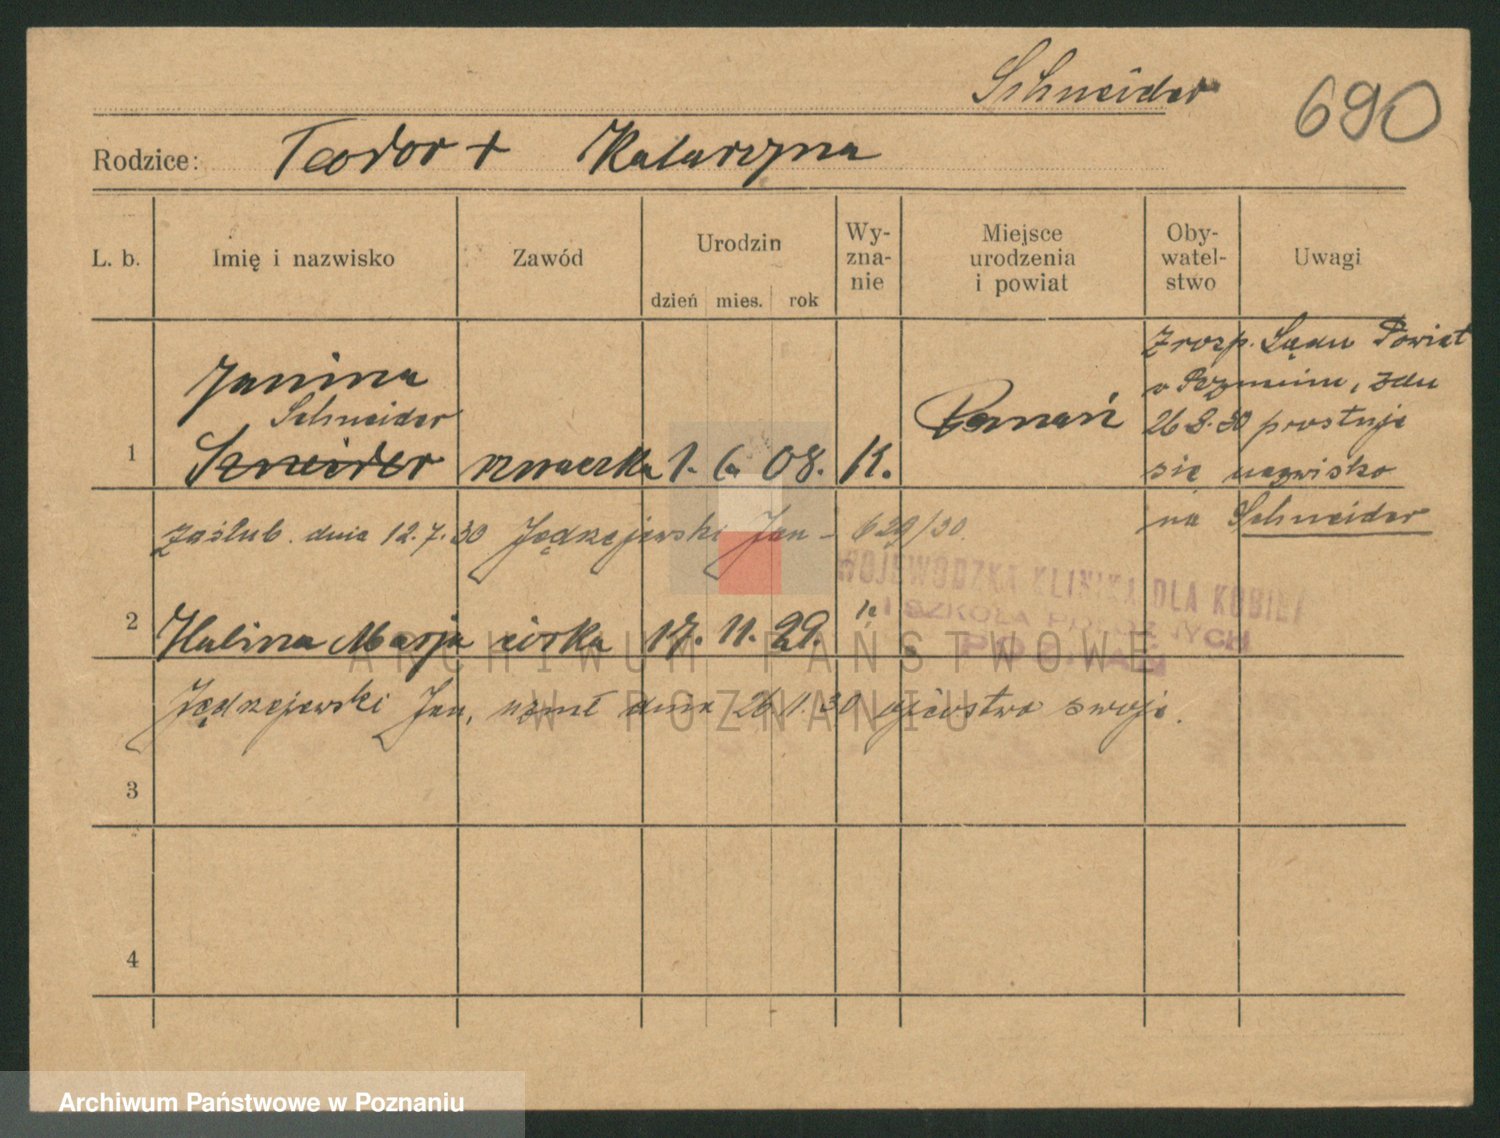 Schneider
690
Rodzice: Teodor + Katarzyna
L. b.
Imię i nazwisko
Zawód
Urodzin
dzień mies. rok
Wy-
zna-
nie
Miejsce
urodzenia
i powiat
Oby-
watel-
stwo
Uwagi
Z rozp. Sądu Powiat
w Poznaniu, z dn
26 8. 30 prostuje
się nazwisko
na Schneider
Janina
Schneider
1 Szneider 1. 6. 08. K. Poznań
zaślub. dnia 12.7.30 Jędrzejewski Jan - 629/30.
WOJEWÓDZKA KLINIKA DLA KOBIET
I SZKOŁA POŁOŻNYCH
POZNAŃ
2 Halina Marja córka 17. 11. 29. k
Jędrzejewski Jan, uznał dnia 26/1. 30 ojcostwo swoje.
3
4
ARCHIWUM PAŃSTWOWE
W POZNANIU
Archiwum Państwowe w Poznaniu